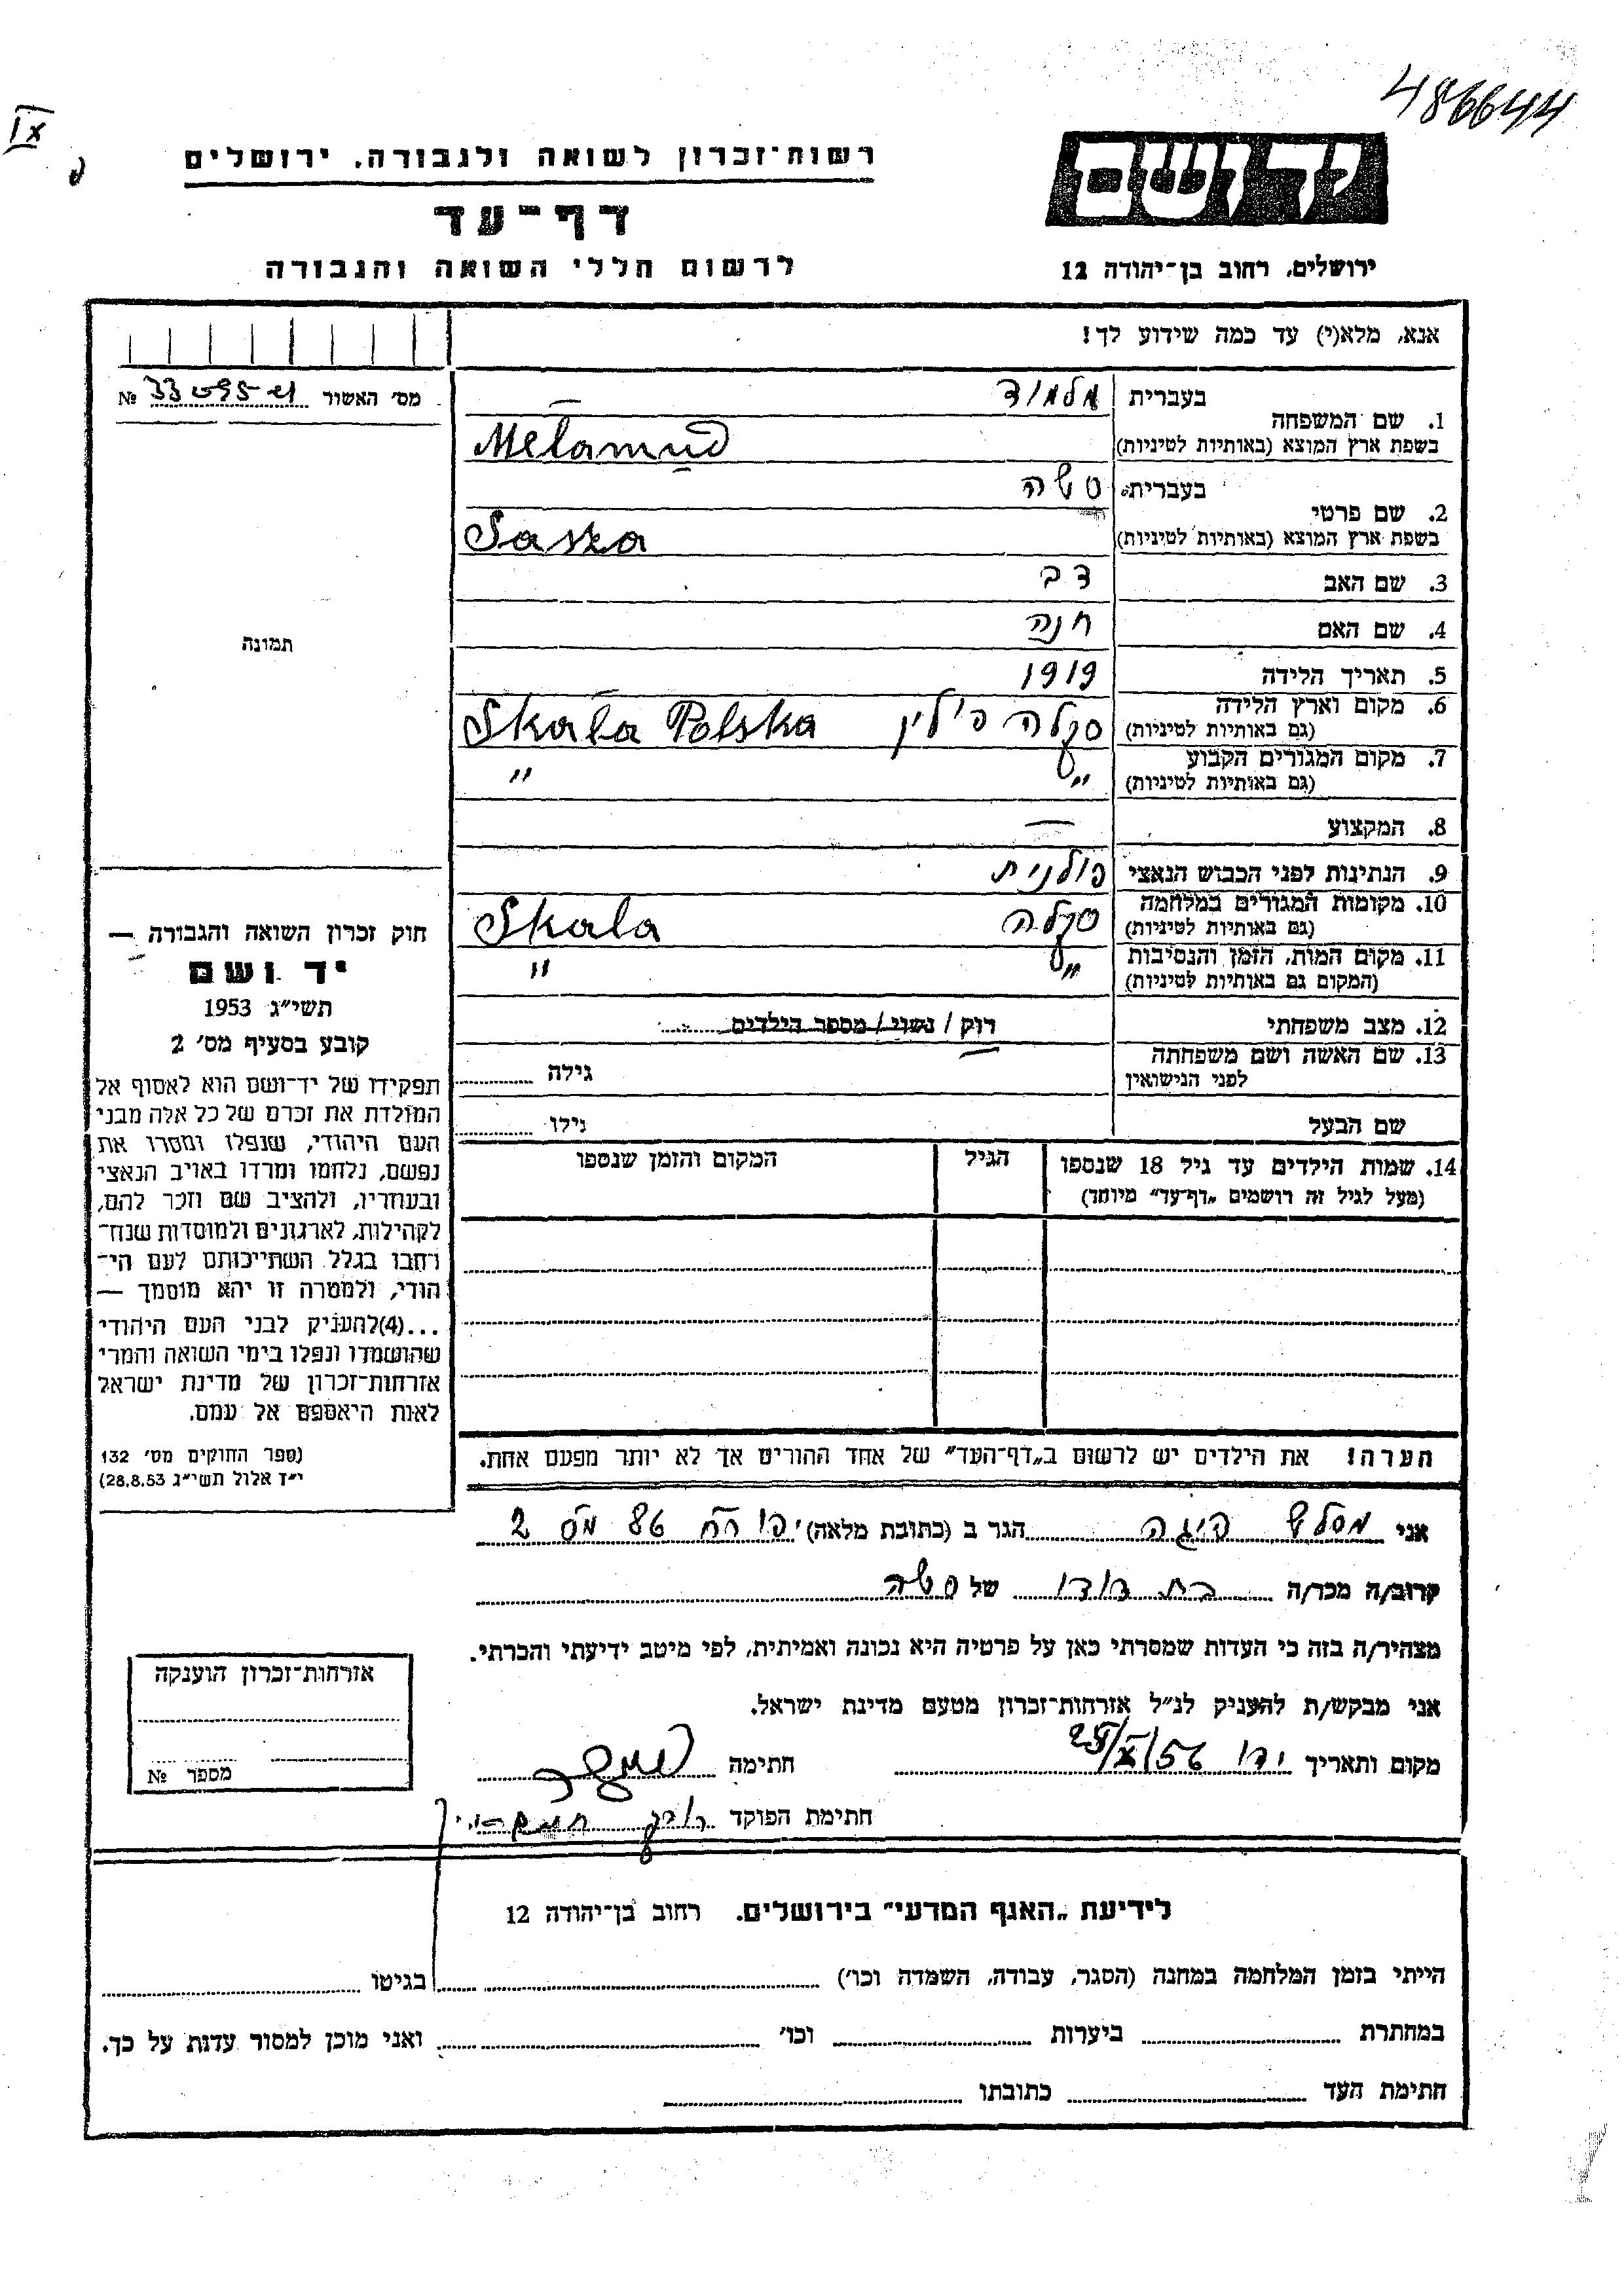 486644
IX
רשות־זכרון לשואה ולגבורה. ירושלים
יד ושם
דף־עד
לרשום חללי השואה והגבורה
ירושלים, רחוב בן־יהודה 12
אנא, מלא(י) עד כמה שידוע לך!
מס׳ האשור №
1. שם המשפחה בעברית מלמוד
בשפת ארץ המוצא (באותיות לטיניות) Melamud
2. שם פרטי בעברית סשה
בשפת ארץ המוצא (באותיות לטיניות) Saszka
3. שם האב דב
4. שם האם חנה
5. תאריך הלידה 1919
6. מקום וארץ הלידה (גם באותיות לטיניות) סקלה פולין Skala Polska
7. מקום המגורים הקבוע (גם באותיות לטיניות) " "
8. המקצוע —
9. הנתינות לפני הכבוש הנאצי פולנית
10. מקומות המגורים במלחמה (גם באותיות לטיניות) סקלה Skala
11. מקום המות, הזמן והנסיבות (המקום גם באותיות לטיניות) " "
12. מצב משפחתי רוק / נשוי / מספר הילדים
13. שם האשה ושם משפחתה לפני הנישואין — גילה
שם הבעל גילו
14. שמות הילדים עד גיל 18 שנספו הגיל המקום והזמן שנספו
(מעל לגיל זה רושמים „דף־עד” מיוחד)
תמונה
חוק זכרון השואה והגבורה —
יד ושם
תשי״ג 1953
קובע בסעיף מס׳ 2
תפקידו של יד־ושם הוא לאסוף אל
המולדת את זכרם של כל אלה מבני
העם היהודי, שנפלו ומסרו את
נפשם, נלחמו ומרדו באויב הנאצי
ובעוזריו, ולהציב שם וזכר להם,
לקהילות, לארגונים ולמוסדות שנח־
רחבו בגלל השתייכותם לעם הי־
הודי, ולמטרה זו יהא מוסמך —
...(4)להעניק לבני העם היהודי
שהושמדו ונפלו בימי השואה והמרי
אזרחות־זכרון של מדינת ישראל
לאות היאספם אל עמם.
(ספר החוקים מס׳ 132
י״ז אלול תשי״ג 28.8.53)
הערה! את הילדים יש לרשום ב„דף־העד” של אחד ההורים אך לא יותר מפעם אחת.
אני הגר ב (כתובת מלאה) 86 2
קרוב/ה מכר/ה בת דודו של סשה
מצהיר/ה בזה כי העדות שמסרתי כאן על פרטיה היא נכונה ואמיתית, לפי מיטב ידיעתי והכרתי.
אני מבקש/ת להעניק לנ״ל אזרחות־זכרון מטעם מדינת ישראל.
מקום ותאריך יפו חתימה
חתימת הפוקד
אזרחות־זכרון הוענקה
מספר №
לידיעת „האגף המדעי” בירושלים. רחוב בן־יהודה 12
הייתי בזמן המלחמה במחנה (הסגר, עבודה, השמדה וכו׳) בגיטו
במחתרת ביערות וכו׳ ואני מוכן למסור עדות על כך.
חתימת העד כתובתו